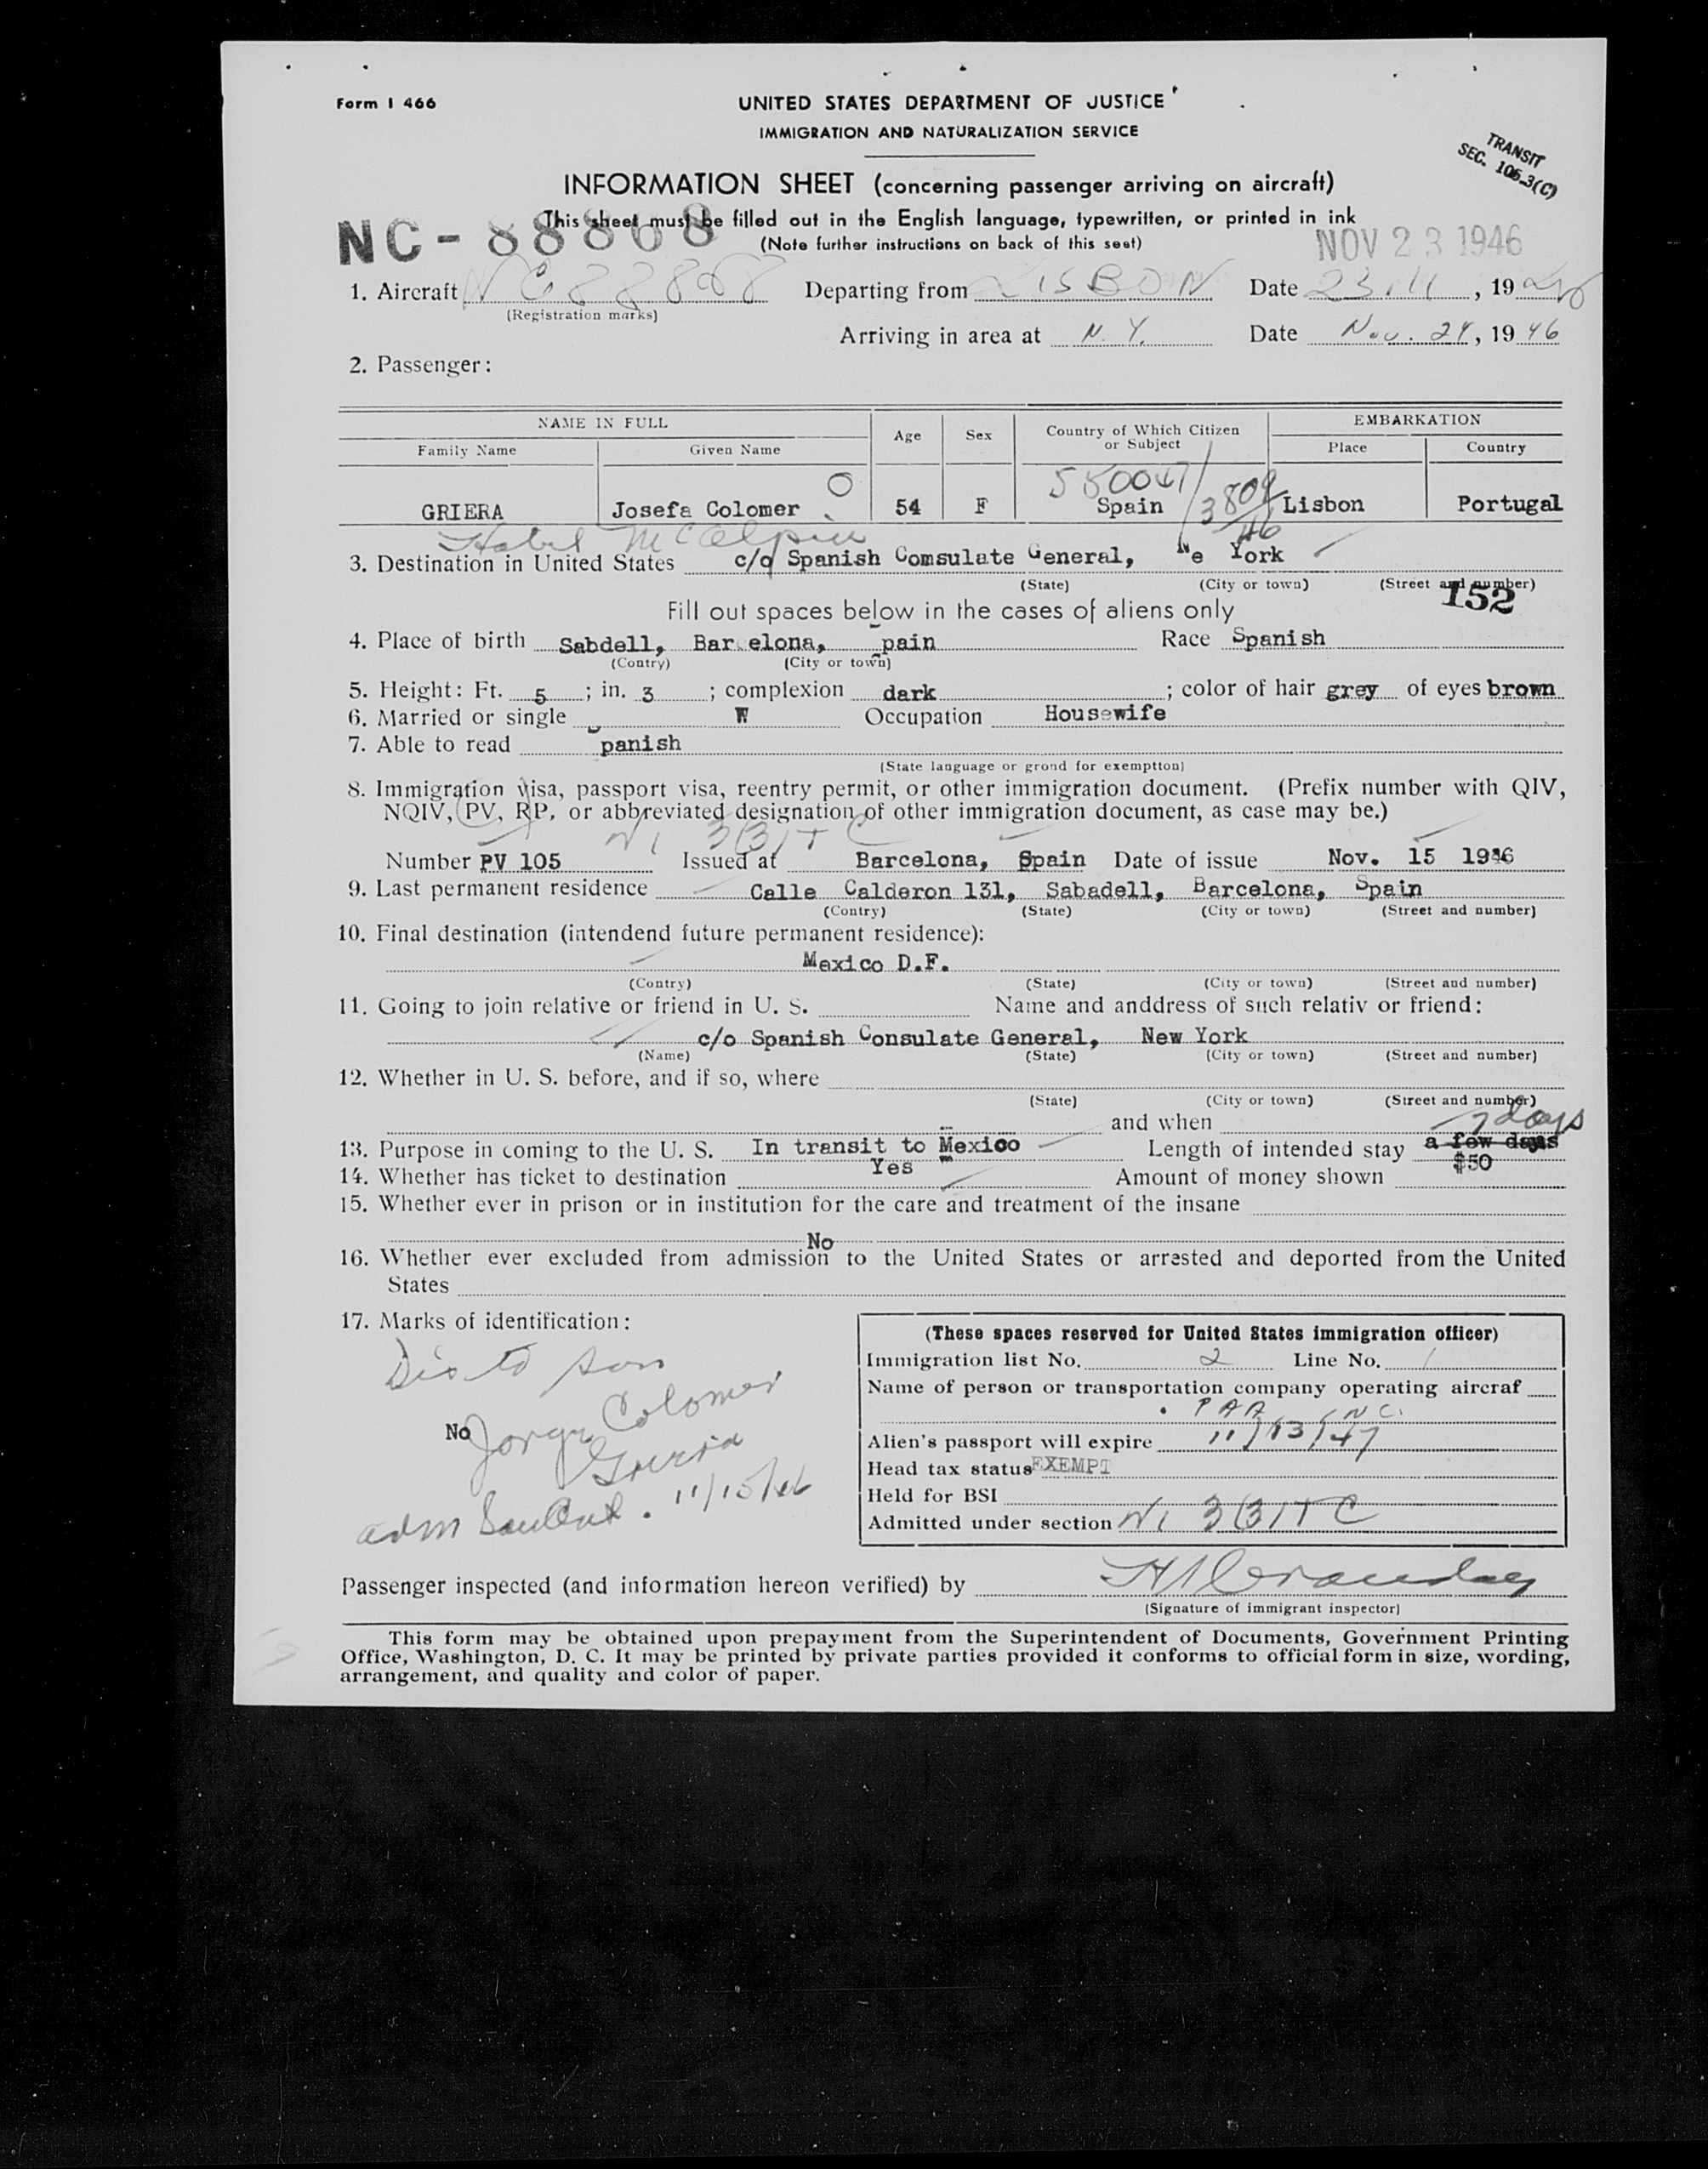 Form I 466
UNITED STATES DEPARTMENT OF JUSTICE
IMMIGRATION AND NATURALIZATION SERVICE
TRANSIT
SEC. 105.3(C)
INFORMATION SHEET (concerning passenger arriving on aircraft)
This sheet must be filled out in the English language, typewritten, or printed in ink
NC-88868
(Note further instructions on back of this seet)
NOV 23 1946
1. Aircraft NC88868 Departing from LISBON Date 23.11, 1946
(Registration marks)
Arriving in area at N.Y. Date Nov. 24, 1946
2. Passenger:
NAME IN FULL Age Sex Country of Which Citizen or Subject EMBARKATION
Family Name Given Name Place Country
550047
3809/46
GRIERA Josefa Colomer 54 F Spain Lisbon Portugal
Hotel McAlpin
3. Destination in United States c/o Spanish Comsulate General, Ne York
(State) (City or town) (Street and number)
152
Fill out spaces below in the cases of aliens only
4. Place of birth Sabdell, Bar elona, pain Race Spanish
(Contry) (City or town)
5. Height: Ft. 5 ; in. 3 ; complexion dark ; color of hair grey of eyes brown
6. Married or single W Occupation Housewife
7. Able to read panish
(State language or grond for exemptton)
8. Immigration visa, passport visa, reentry permit, or other immigration document. (Prefix number with QIV,
NQIV, PV, RP, or abbreviated designation of other immigration document, as case may be.)
NI 3(3)TC
Number PV 105 Issued at Barcelona, Spain Date of issue Nov. 15 1946
9. Last permanent residence Calle Calderon 131, Sabadell, Barcelona, Spain
(Contry) (State) (City or town) (Street and number)
10. Final destination (intendend future permanent residence):
Mexico D.F.
(Contry) (State) (City or town) (Street and number)
11. Going to join relative or friend in U. S. Name and anddress of such relativ or friend:
c/o Spanish Consulate General, New York
(Name) (State) (City or town) (Street and number)
12. Whether in U. S. before, and if so, where
(State) (City or town) (Street and number)
and when
7 days
13. Purpose in coming to the U. S. In transit to Mexico Length of intended stay a few days
14. Whether has ticket to destination Yes Amount of money shown $50
15. Whether ever in prison or in institution for the care and treatment of the insane
No
16. Whether ever excluded from admission to the United States or arrested and deported from the United
States
17. Marks of identification:
No
to son
Jorge Colomer
Griera
adm . 11/15/46
(These spaces reserved for United States immigration officer)
Immigration list No. 2 Line No. 1
Name of person or transportation company operating aircraf
PAA INC.
Alien's passport will expire 11/13/47
Head tax status EXEMPT
Held for BSI
Admitted under section NI 3(3)TC
Passenger inspected (and information hereon verified) by
(Signature of immigrant inspector)
This form may be obtained upon prepayment from the Superintendent of Documents, Government Printing
Office, Washington, D. C. It may be printed by private parties provided it conforms to official form in size, wording,
arrangement, and quality and color of paper.